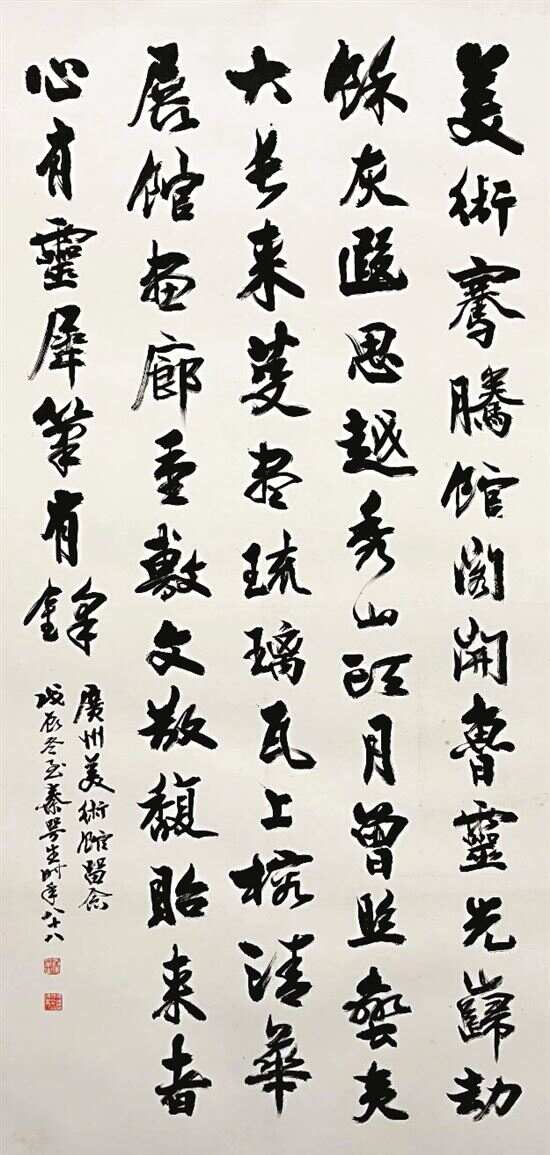 美術騫騰館閣開魯靈光巋劫
餘灰遐思越秀山頭月曾照蠻夷
大長来琉璃瓦上清華
展館畫廊重敷文散馥貽来者
心有靈犀筆有鋒
廣州美術館留念
戊辰冬至秦咢生時年八十八